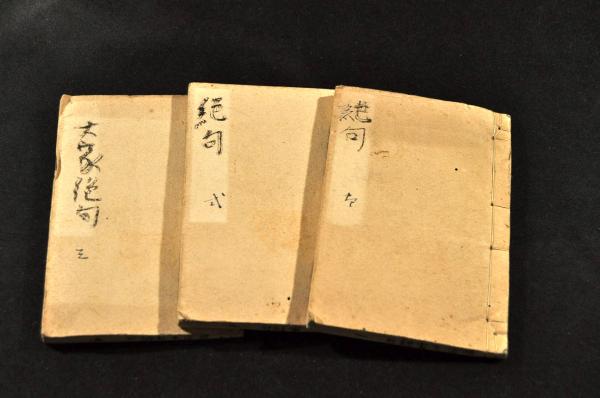 絶句
絶句 弍
大家絶句 三